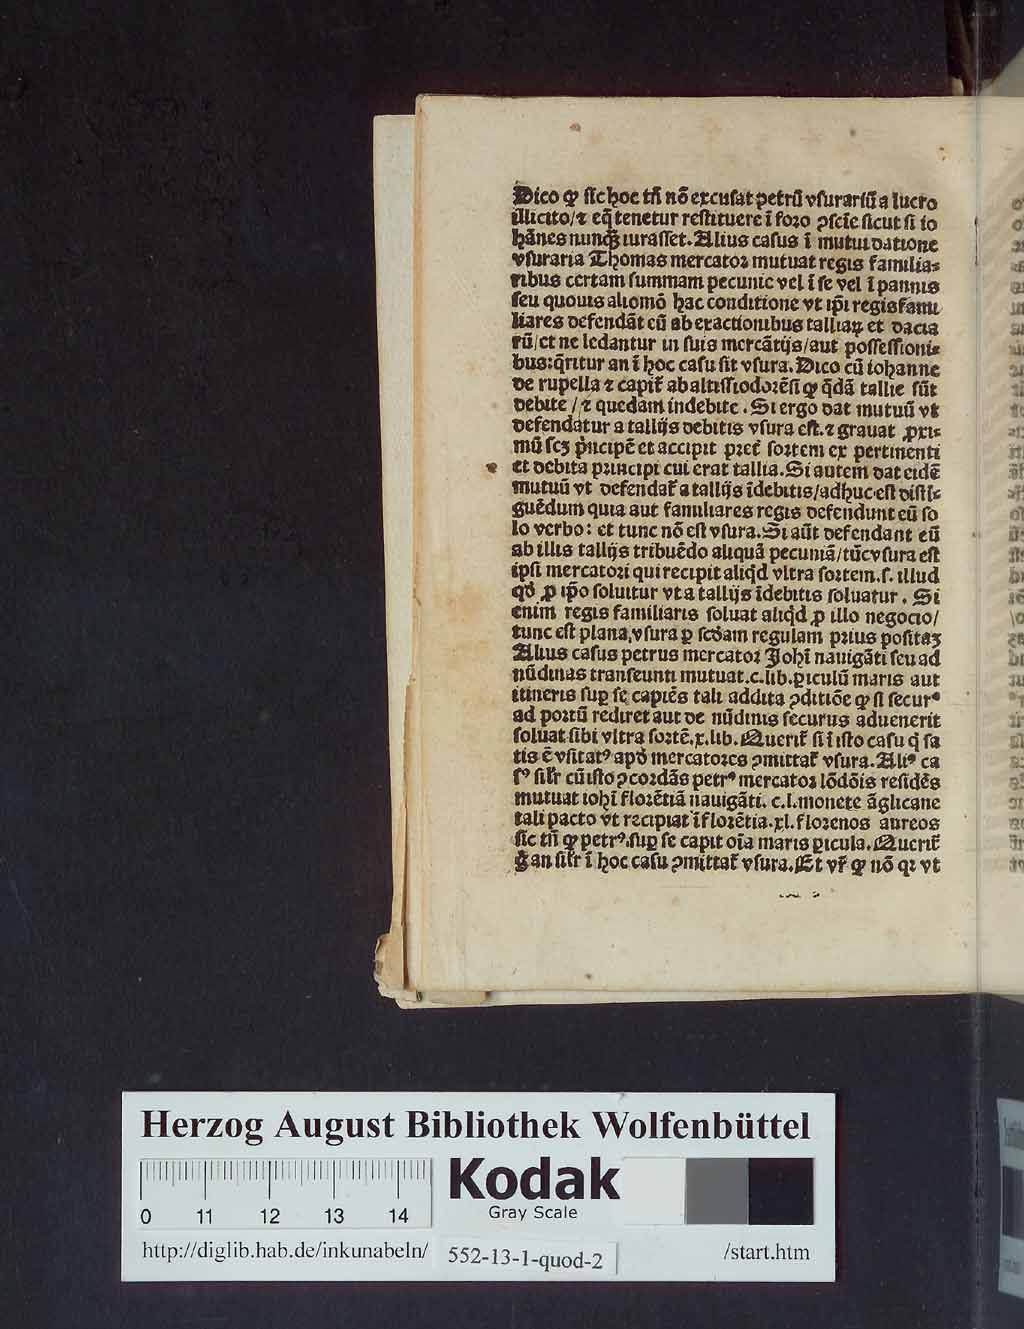 Dico ꝙ sic hoc tñ nõ excusat petrũ vsurariũ a lucro
illicito/⁊ eq̃ tenetur restituere ĩ foro ꝯsciẽ sicut si io
hãnes nunq̃ iurasset. Alius casus ĩ mutui datione
vsuraria Thomas mercator mutuat regis familia⸗
ribus certam summam pecunie vel ĩ se vel ĩ pannis
seu quouis aliomõ hac conditione vt ip̃i regis fami
liares defendãt eũ ab exactionibus talliaꝝ et dacia
rũ/et ne ledantur in suis mercãtijs/aut possessioni⸗
bus:q̃ritur an ĩ hoc casu sit vsura. Dico cũ iohanne
de rupella ⁊ capit̃ ab altissiodorẽsi ꝙ q̃dã tallie sũt
debite / ⁊ quedam indebite. Si ergo dat mutuũ vt
defendatur a tallijs debitis vsura est.⁊ grauat ꝓxi⸗
mũ scꝫ p̃ncipẽ et accipit pret̃ sortem ex pertinenti
et debita principi cui erat tallia. Si autem dat eidẽ
mutuũ vt defendat̃ a tallijs ĩdebitis/adhuc est disti⸗
guẽdum quia aut familiares regis defendunt eũ so
lo verbo: et tunc nõ est vsura. Si aũt defendant eũ
ab illis tallijs tribuẽdo aliquã pecuniã/tũc vsura est
ipsi mercatori qui recipit aliq̃d vltra sortem.s. illud
qđ ꝓ ip̃o soluitur vt a tallijs ĩdebitis soluatur. Si
enim regis familiaris soluat aliq̃d ꝓ illo negocio/
tunc est plana vsura ꝑ scđam regulam prius positaꝫ
Alius casus petrus mercator Johĩ nauigãti seu ad
nũdinas transeunti mutuat.c.lib.ꝑiculũ maris aut
itineris suꝑ se capiẽs tali addita ꝯditiõe ꝙ si secur⁹
ad portũ rediret aut de nũdinis securus aduenerit
soluat sibi vltra sortẽ.x.lib. Querit̃ si ĩ isto casu q̃ sa
tis ẽ vsitat⁹ apđ mercatores ꝯmittat̃ vsura. Ali⁹ ca
s⁹ sil̃r cũ isto ꝯcordãs petr⁹ mercator lõdõis residẽs
mutuat iohĩ florẽtiã nauigãti. c.l.monete ãglicane
tali pacto vt recipiat ĩ florẽtia.xl.florenos aureos
sic tñ ꝙ petr⁹.suꝑ se capit oĩa maris ꝑicula. Querit̃
g̃ an sil̃r ĩ hoc casu ꝯmittat̃ vsura. Et vr̃ ꝙ nõ qꝛ vt
Herzog August Bibliothek Wolfenbüttel
Kodak
Gray Scale
0 11 12 13 14
http://diglib.hab.de/inkunabeln/ 552-13-1-quod-2 /start.htm